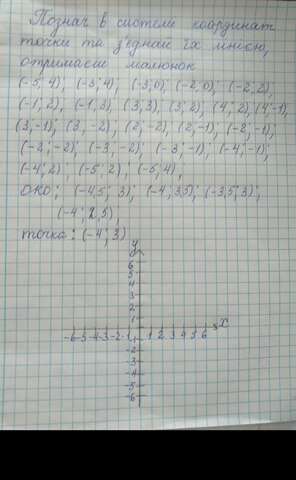 Познач в системі координат
точки та з'єднай їх лінією,
отримаєш малюнок
(-5; 4), (-3; 4), (-3; 0), (-2; 0), (-2; 2),
(-1; 2), (-1; 3), (3; 3), (3; 2), (4; 2), (4; -1),
(3; -1), (3; -2), (2; -2), (2; -1), (-2; -1),
(-2; -2), (-3; -2), (-3; -1), (-4; -1),
(-4; 2), (-5; 2), (-5; 4),
око: (-4,5; 3), (-4; 3,5); (-3,5; 3);
(-4; 2,5),
точка: (-4; 3)
y
6
5
4
3
2
1
-6 -5 -4 -3 -2 -1 1 2 3 4 5 6 x
-1
-2
-3
-4
-5
-6